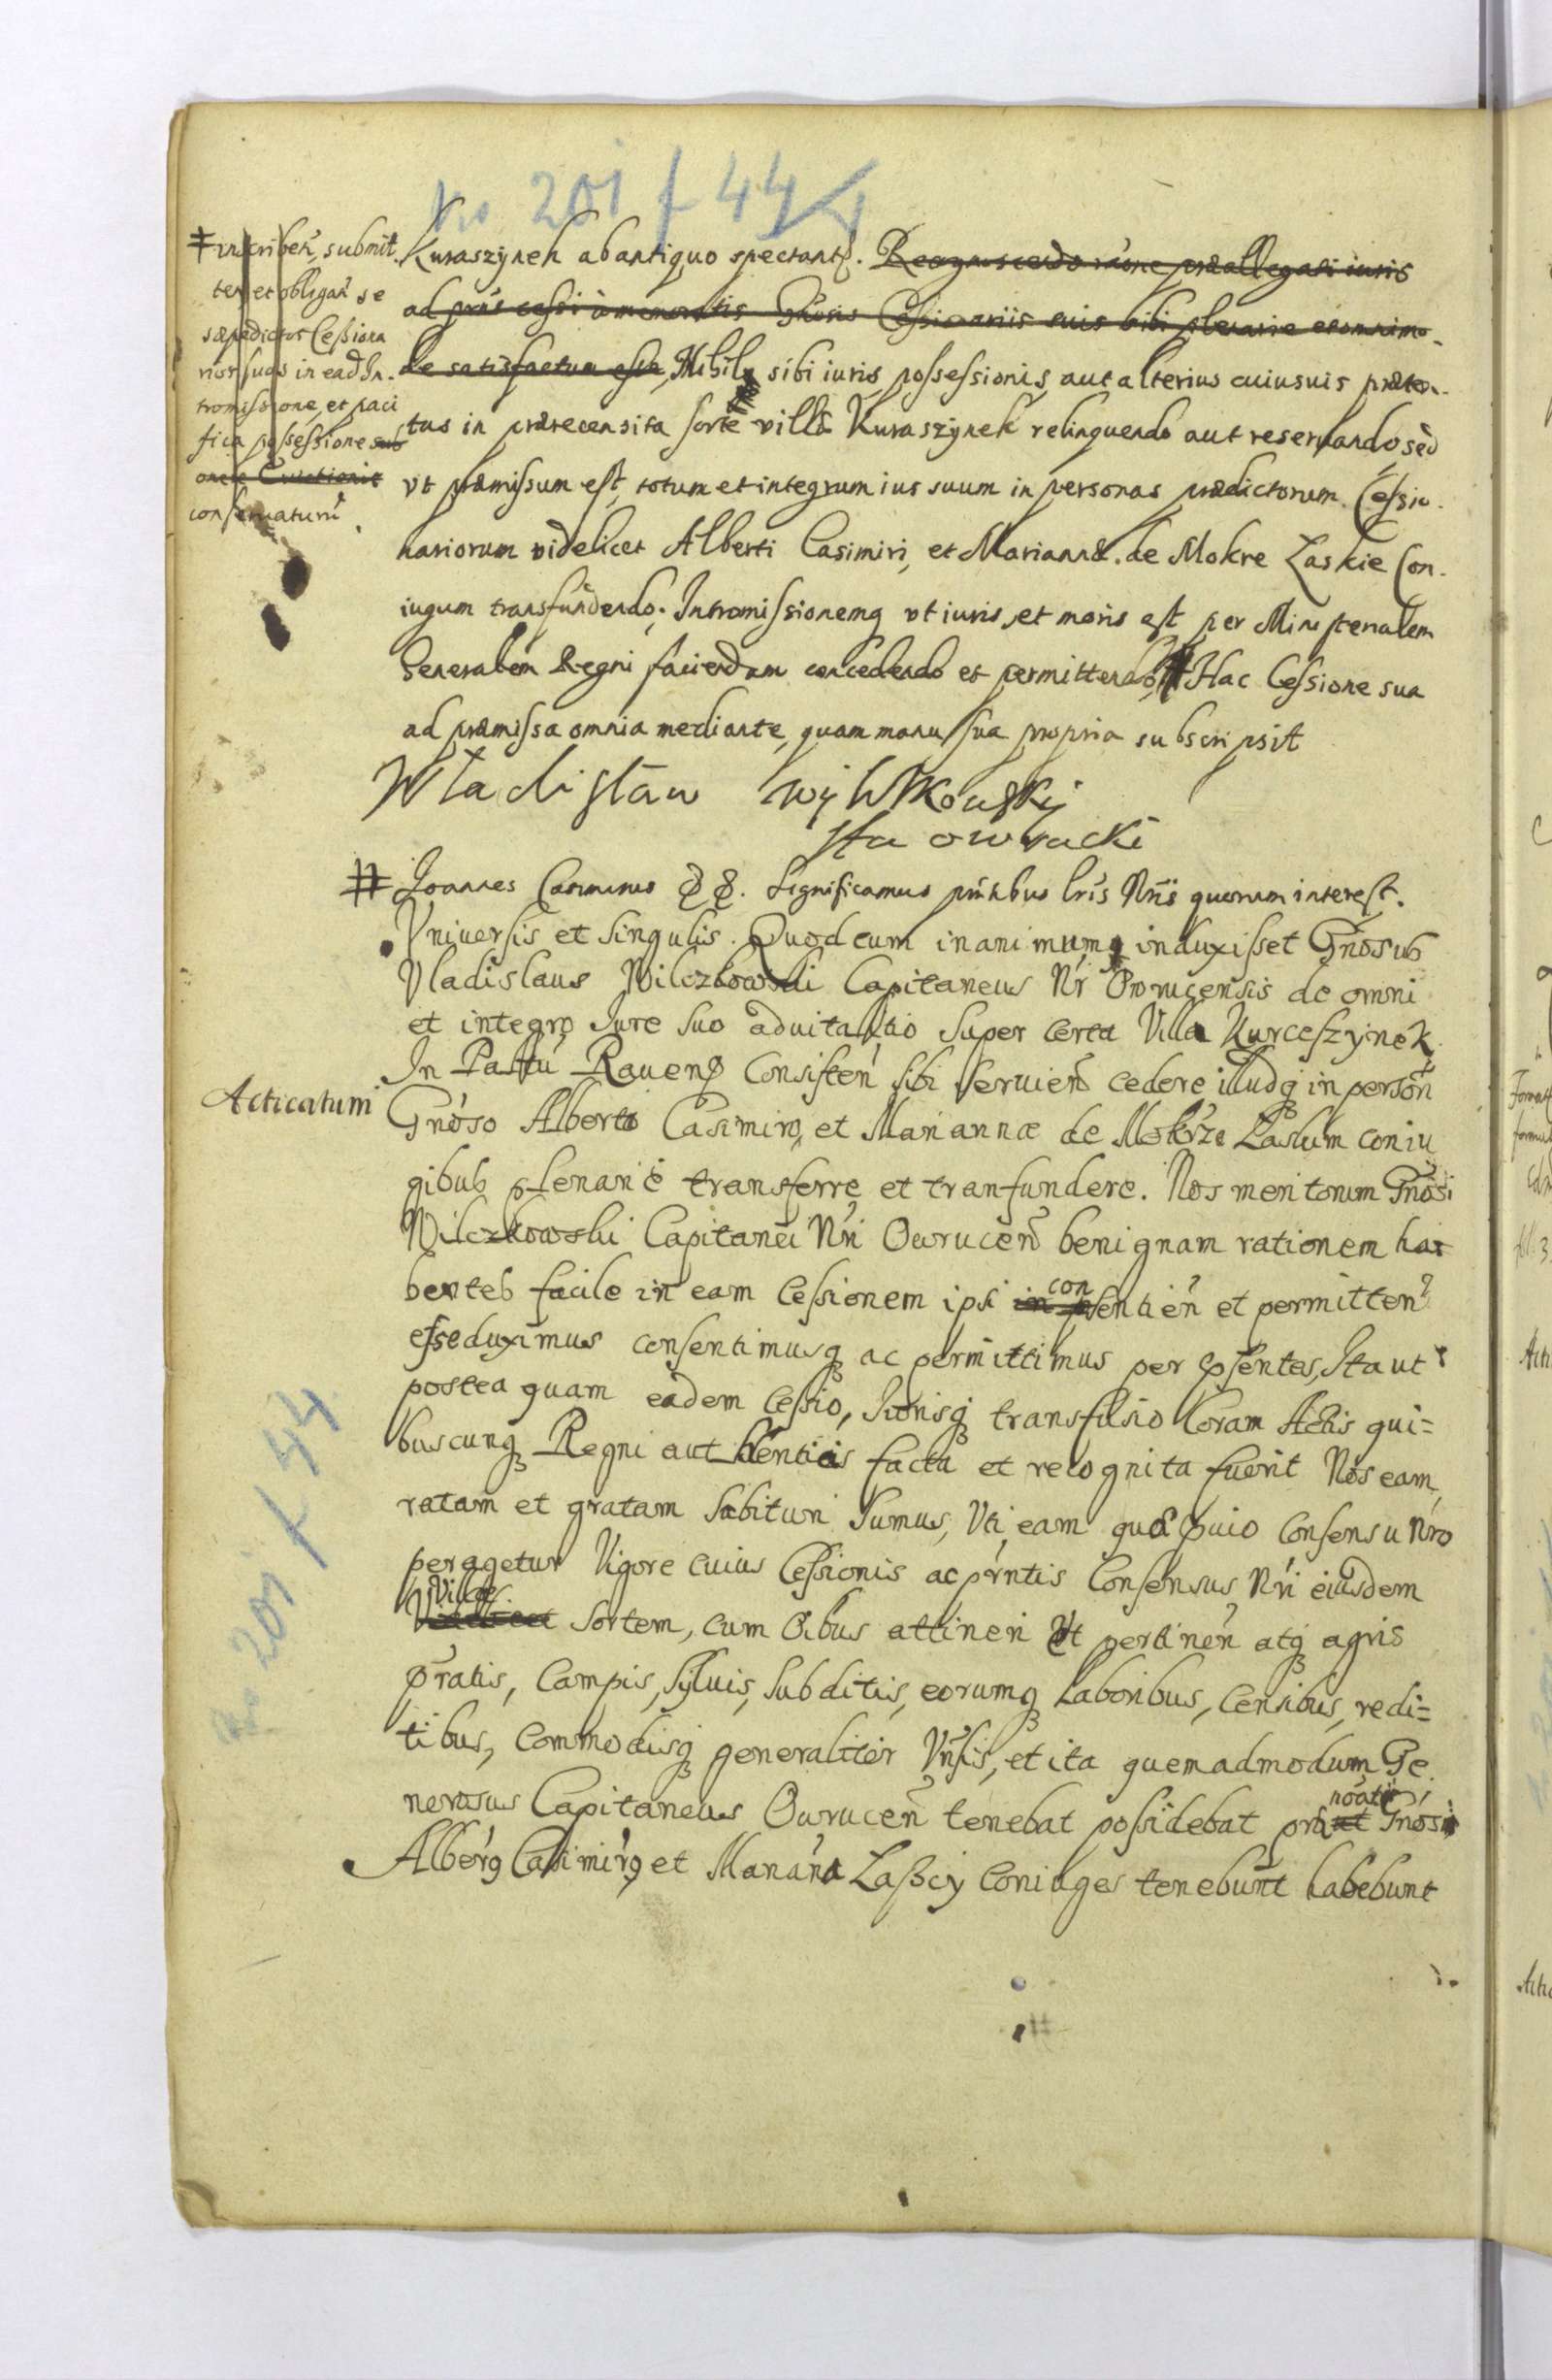 No 201 f 44
‡ inscriben, submit
ten et obligan se
sæpedictos Cessiona
rios suos in ead In-
tromissione, et paci
fica possessione sub
onere Evictionis
conservaturu
Kuraszÿnek ab antiquo spectant. Recognoscendo raone præallegati iuris
ad prns cessi à memoratis Gnosis Cessionariis suis sibi plenarie et omnimo-
de satisfactum esse, Nihil sibi iuris possessionis, aut alterius cuiusuis præten-
tus in præcensita sorte villæ Kuraszÿnek relinquendo aut reservando sed
vt præmissum est, totum et integrum ius suum in personas prædictorum Cessio-
nariorum videlicet Alberti Casimiri, et Mariannæ de Mokre Laskie Con-
iugum transfundendo. Intromissionemq vt iuris, et moris est per Ministerialem
Generalem Regni faciendam concedendo et permittendo ‡ Hac Cessione sua
ad præmissa omnia mediante, quam manu sua propria subscripsit
Władisław Wÿlkowskÿ
sta owracki
Acticatum
# Joannes Casimirus &. Significamus pntibus lris Nris quorum interest.
Vniversis et Singulis. Quod cum in animum induxisset Gnosus
Vladislaus Wilczkowski Capitaneus Nr Owrucensis de omni
et integro Iure Suo aduitalitio Super certa Villa Kurceszÿnek
In Pallu Rauen Consisten Sibi Seruien cedere illudq in person
Gnoso Alberto Casimiro, et Mariannæ de Mokrze Laskim coniu
gibus plenarie transferre et tranfundere. Nos meritorum Gnosi
Wilczkowski Capitanei Nri Owrucen benignam rationem ha-
bentes facile in eam Cessionem ipsi consentien et permitten
esse duximus consentimusq ac permittimus per psentes, Ita ut
postea quam eadem Cessio, Iurisq transfusio Coram Actis qui=
buscunq Regni authenticis facta et recognita fuerit Nos eam,
ratam et gratam habituri Sumus, Vti eam quæ puio Consensu Nro
peragetur Vigore cuius Cessionis ac prntis Consensus Nri eiusdem
Villæ Sortem, cum oibus attinen et pertinen atq agris
pratis, Campis, Sÿluis, Subditis, eorumq Laboribus, Censibus, redi=
tibus, Commodisq generaliter Vnsis, et ita quemadmodum Ge
nerosus Capitaneus Owrucen tenebat possidebat noati Gnosi
Alberg Casimirg et Mariana Lasscÿ Coniuges tenebunt habebunt
No 201 f 44